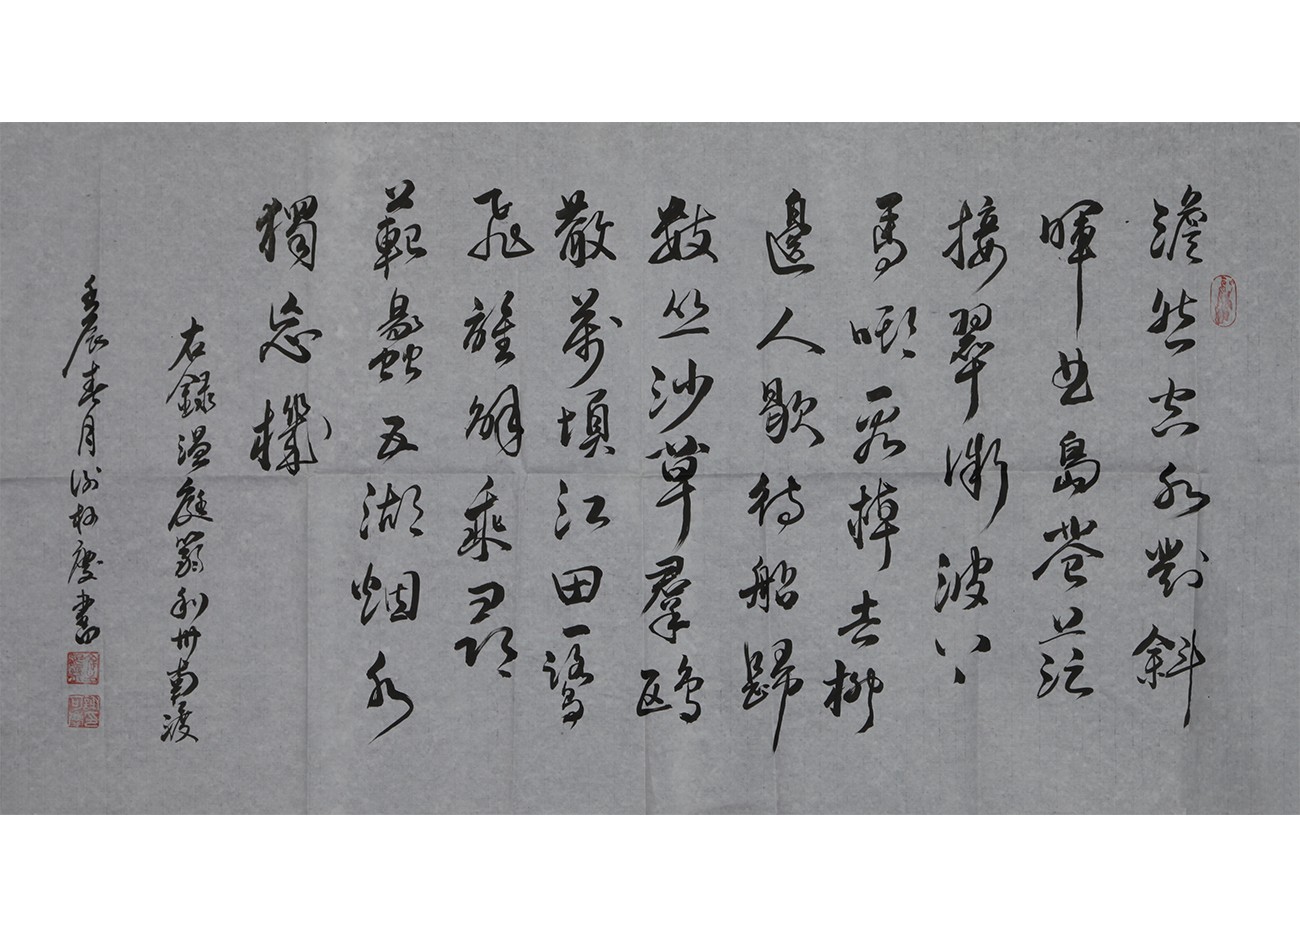 澹然空水對斜
暉曲島蒼茫
接翠微波上
馬嘶看棹去柳
邊人歇待船歸
數丛沙草羣鷗
散萬頃江田一鷺
飛誰解乘舟尋
範蠡五湖烟水
獨忘機
右録温庭筠利州南渡
壬辰春月 慶書